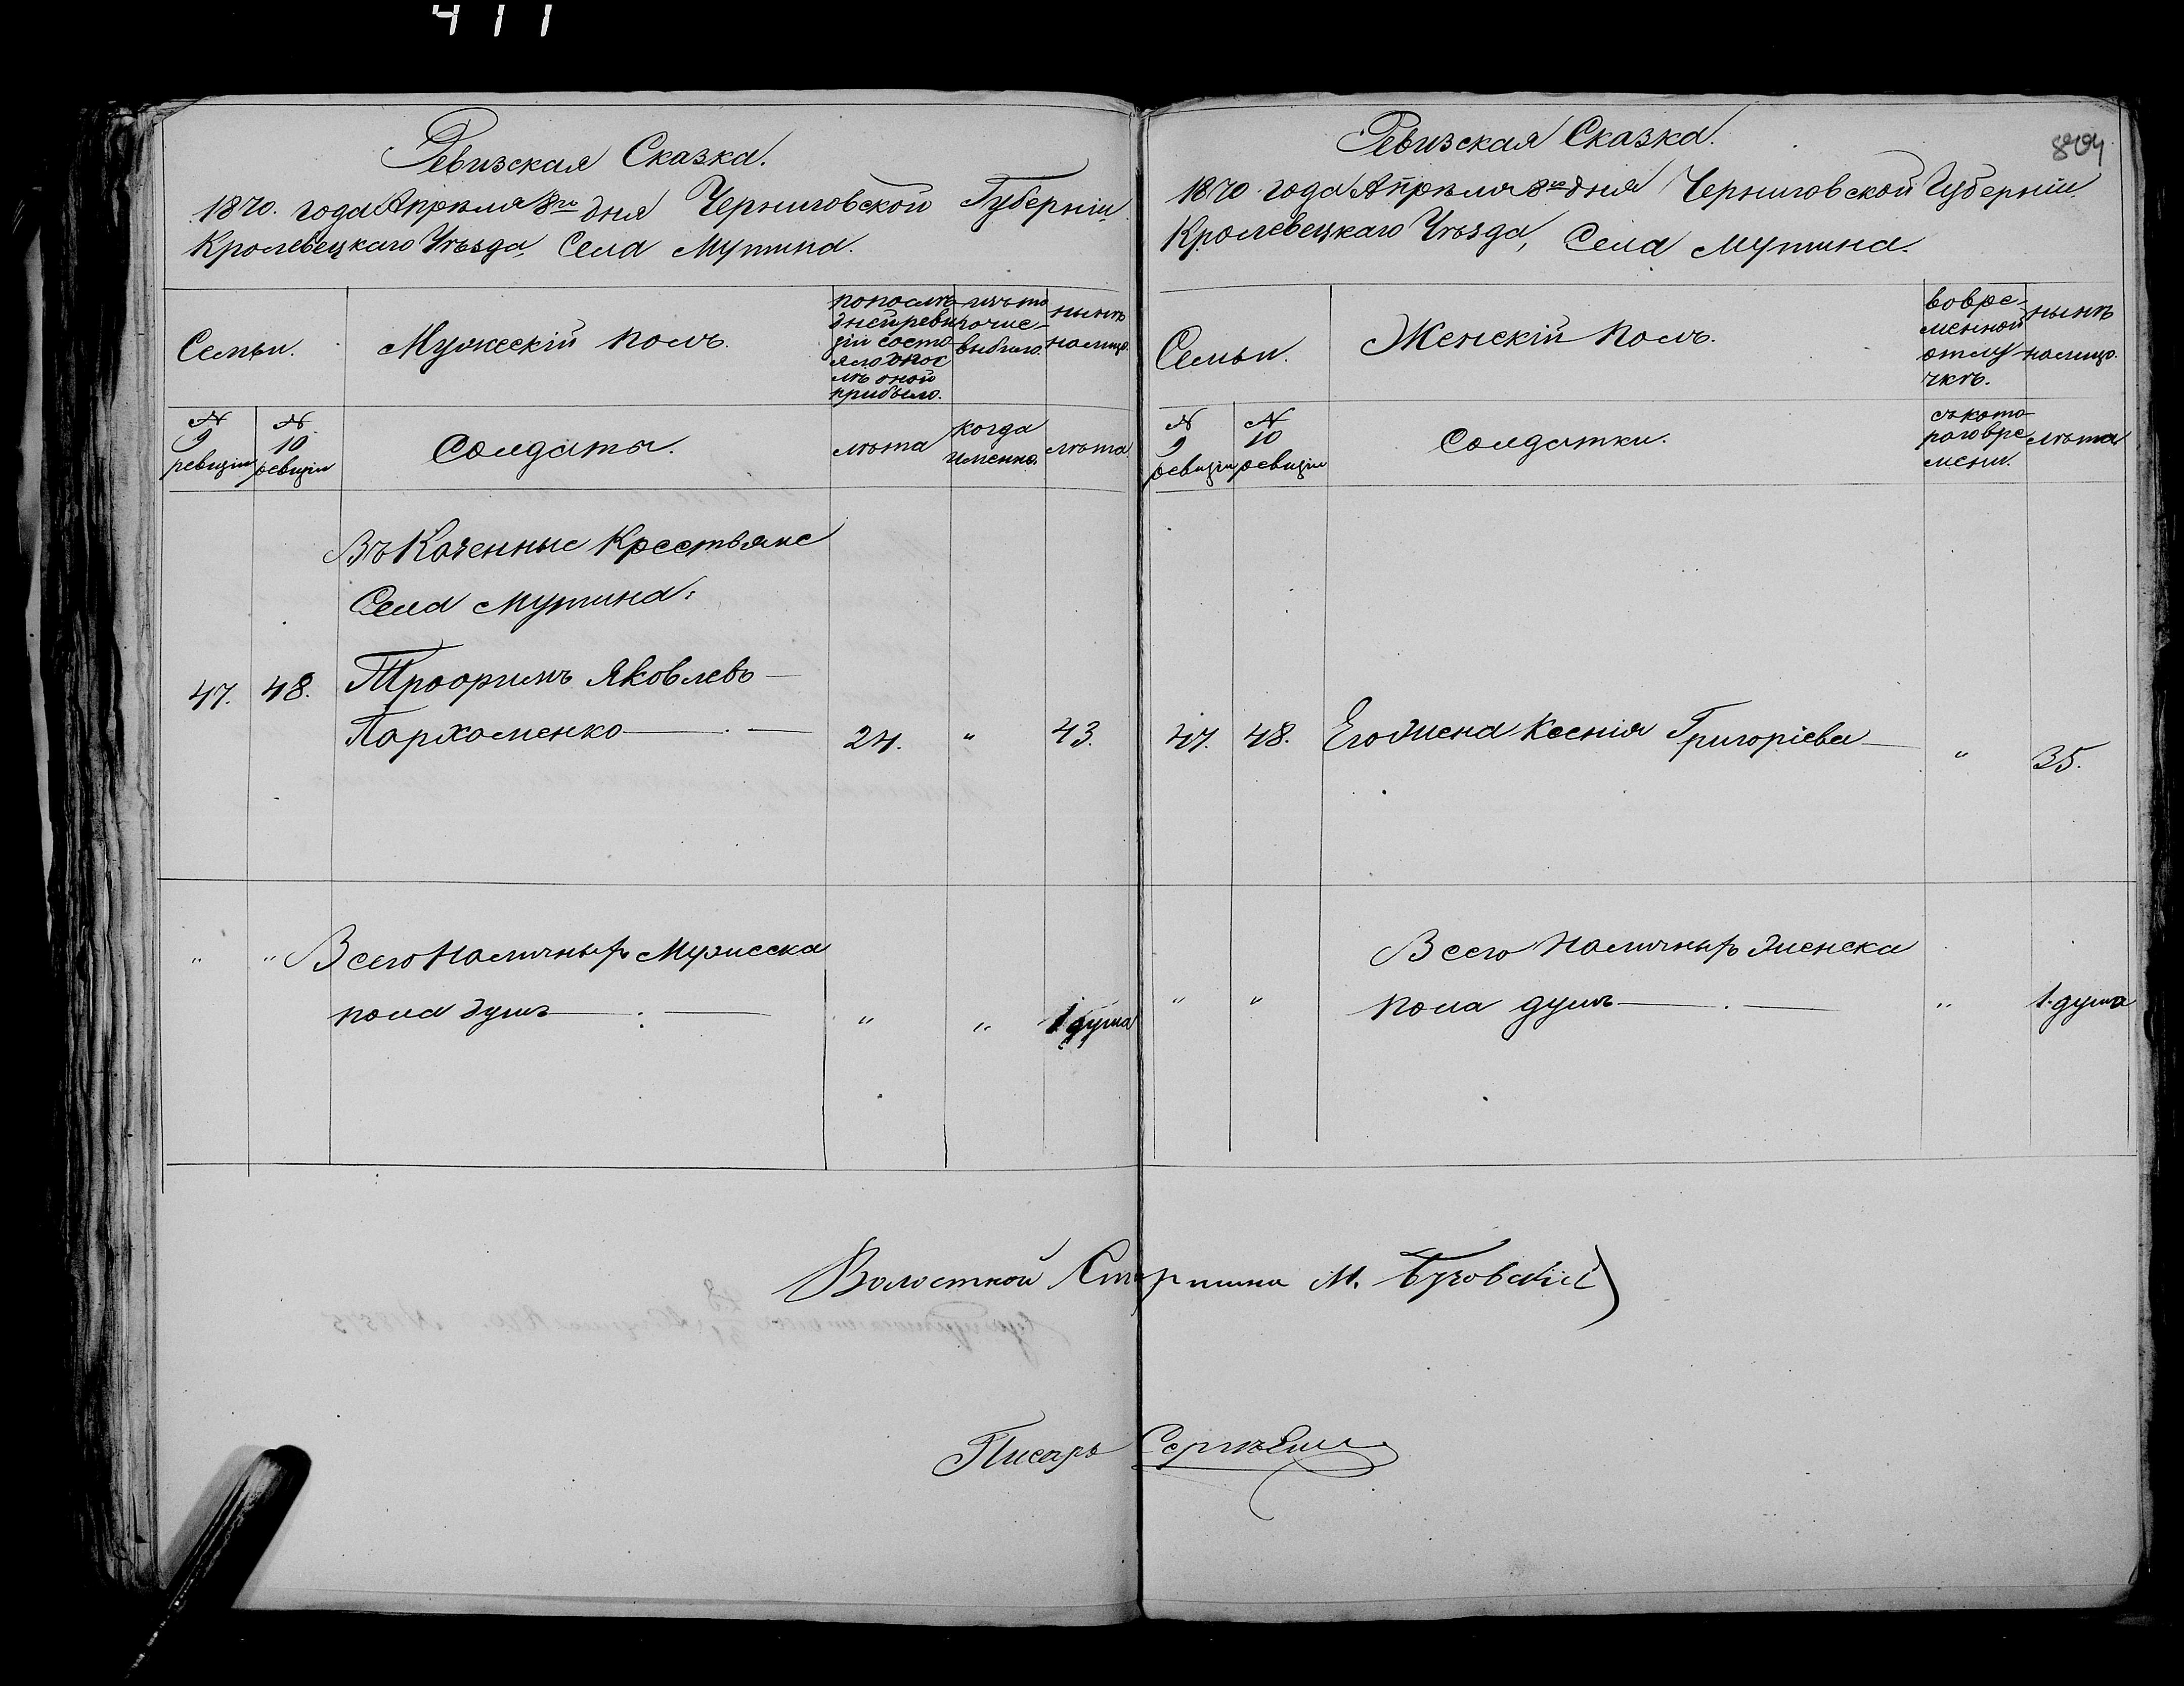 411
Ревизская Сказка.
1870. года Апрѣля 8го дня Черниговской Губерніи
Кролевецкаго Уѣзда, Села Мутина.
Семьи.
Мужескій полъ.
попослѣ-
дней реви-
зіи состо-
яло опос
лѣ оной
прибыло.
изъ то
го чис-
ла выбыло.
нынѣ
налицо.
№
9
ревизіи
№
10
ревизіи
Солдаты.
лѣта
когда
именно.
лѣта.
Въ Казенные Крестьяне
Села Мутина:
47. 48. Трофимъ Яковлевъ
Пархоменко 24. " 43.
" " Всего Наличныхъ Мужеска
пола душъ " " 1 душа
Ревизская Сказка.
804
1870 года Апрѣля 8го дня Черниговской Губерніи.
Кролевецкаго Уѣзда, Села Мутина.
Семьи.
Женскій полъ.
вовре-
менной
отлу-
чкѣ.
нынѣ
налицо.
№
9
ревизіи
№
10
ревизіи
Солдатки.
съ кото-
раго вре
мени.
лѣта
47. 48. Его жена Ксенія Григоріева " 35.
Всего Наличныхъ женска
" " пола душъ " 1 душа
Волостной Старшина М.
Писарь